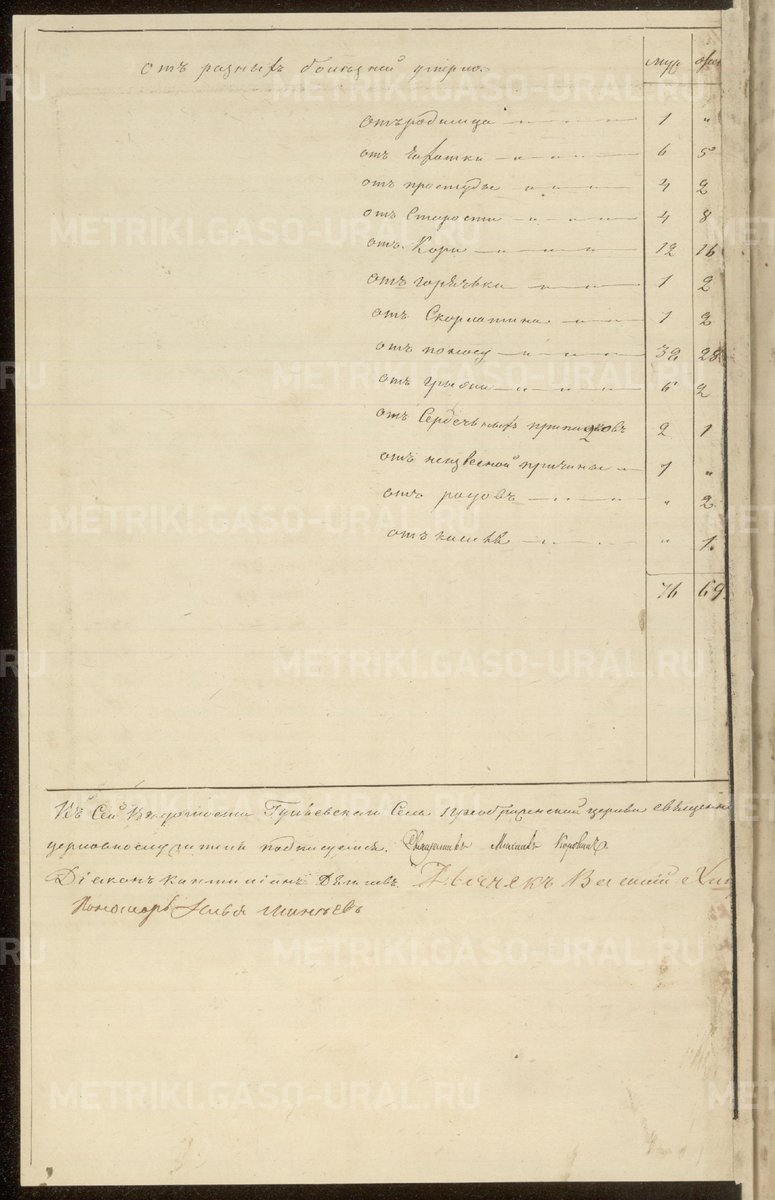 отъ разныхъ болѣзней умерло. муж жен
отъ родимца 1 "
отъ чахотки 6 5
отъ простуды 4 2
отъ Старости 4 8
отъ Кори 12 16
отъ горячьки 1 2
отъ Скорлатина 1 2
отъ поносу 32 28
отъ грыжи 6 2
отъ Сердечьныхъ припадковъ 2 1
отъ неизвесной причины 1 "
отъ родовъ " 2
отъ кашля " 1.
76 69
Къ Сей Вѣдомости Села Преображенской церкви священно
церковнослужители подписуемся. Священникъ Михаилъ Коровинъ
Діаконъ Дягилевъ. Дьячекъ Василий
Пономарь Илья
METRIKI.GASO-URAL.RU